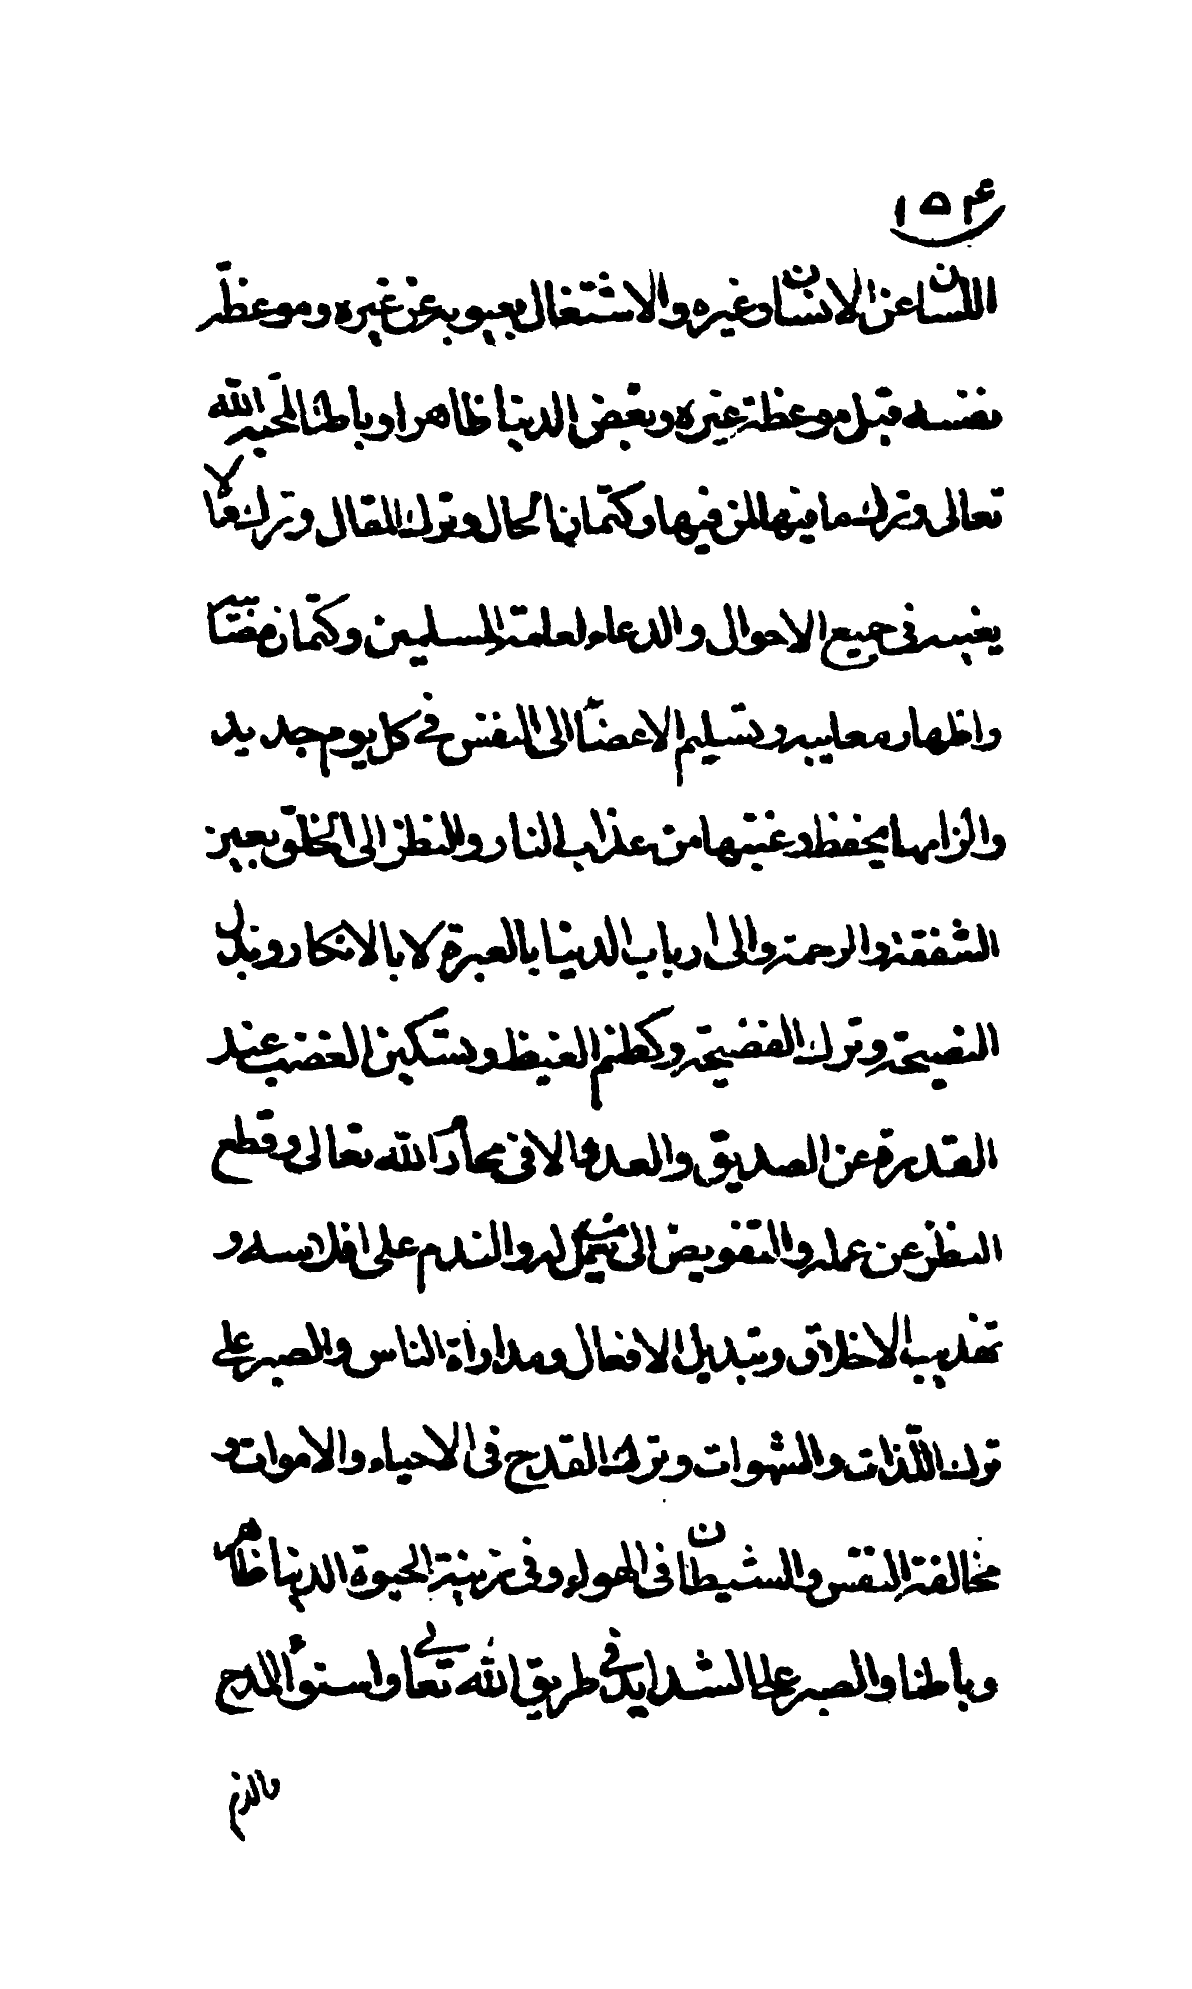 ١٥٤
اللسان عن الانسان وغيره والاشتغال بعيوبه عن غيره وموعظة
نفسه قبل موعظة غيره وبغض الدنيا ظاهرا وباطنا لمحبة الله
تعالى وترك ما فيها لمن فيها وكتمان الحال وترك المقال وترك
يعنيه في جميع الاحوال والدعاء لعامة المسلمين وكتمان
واظهار معايبه وتسليم الاعضاء الى النفس في كل يوم جديد
والزامها بحفظ رغبتها من عذاب النار والنظر الى الخلق بعين
الشفقة والرحمة والى ارباب الدنيا بالعبرة لا بالانكار وبذل
النصيحة وترك الفضيحة وكظم الغيظ وتسكين الغضب عند
القدرة عن الصديق والعدو الا في محارم الله تعالى وقطع
النظر عن عمله والتفويض الى له والندم على افلاسه و
تهذيب الاخلاق وتبديل الافعال ومداراة الناس والصبر على
ترك اللذات والشهوات وترك القدح في الاحياء والاموات و
مخالفة النفس والشيطان في الهواء وفي زينة الحيوة الدنيا ظاهر
وباطنا والصبر على الشدايد في طريق الله تعالى واستواء المدح
والذم